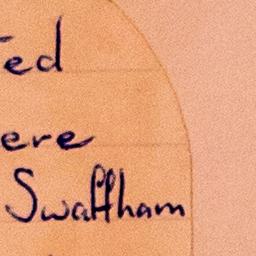 ed
ere
Swaffham